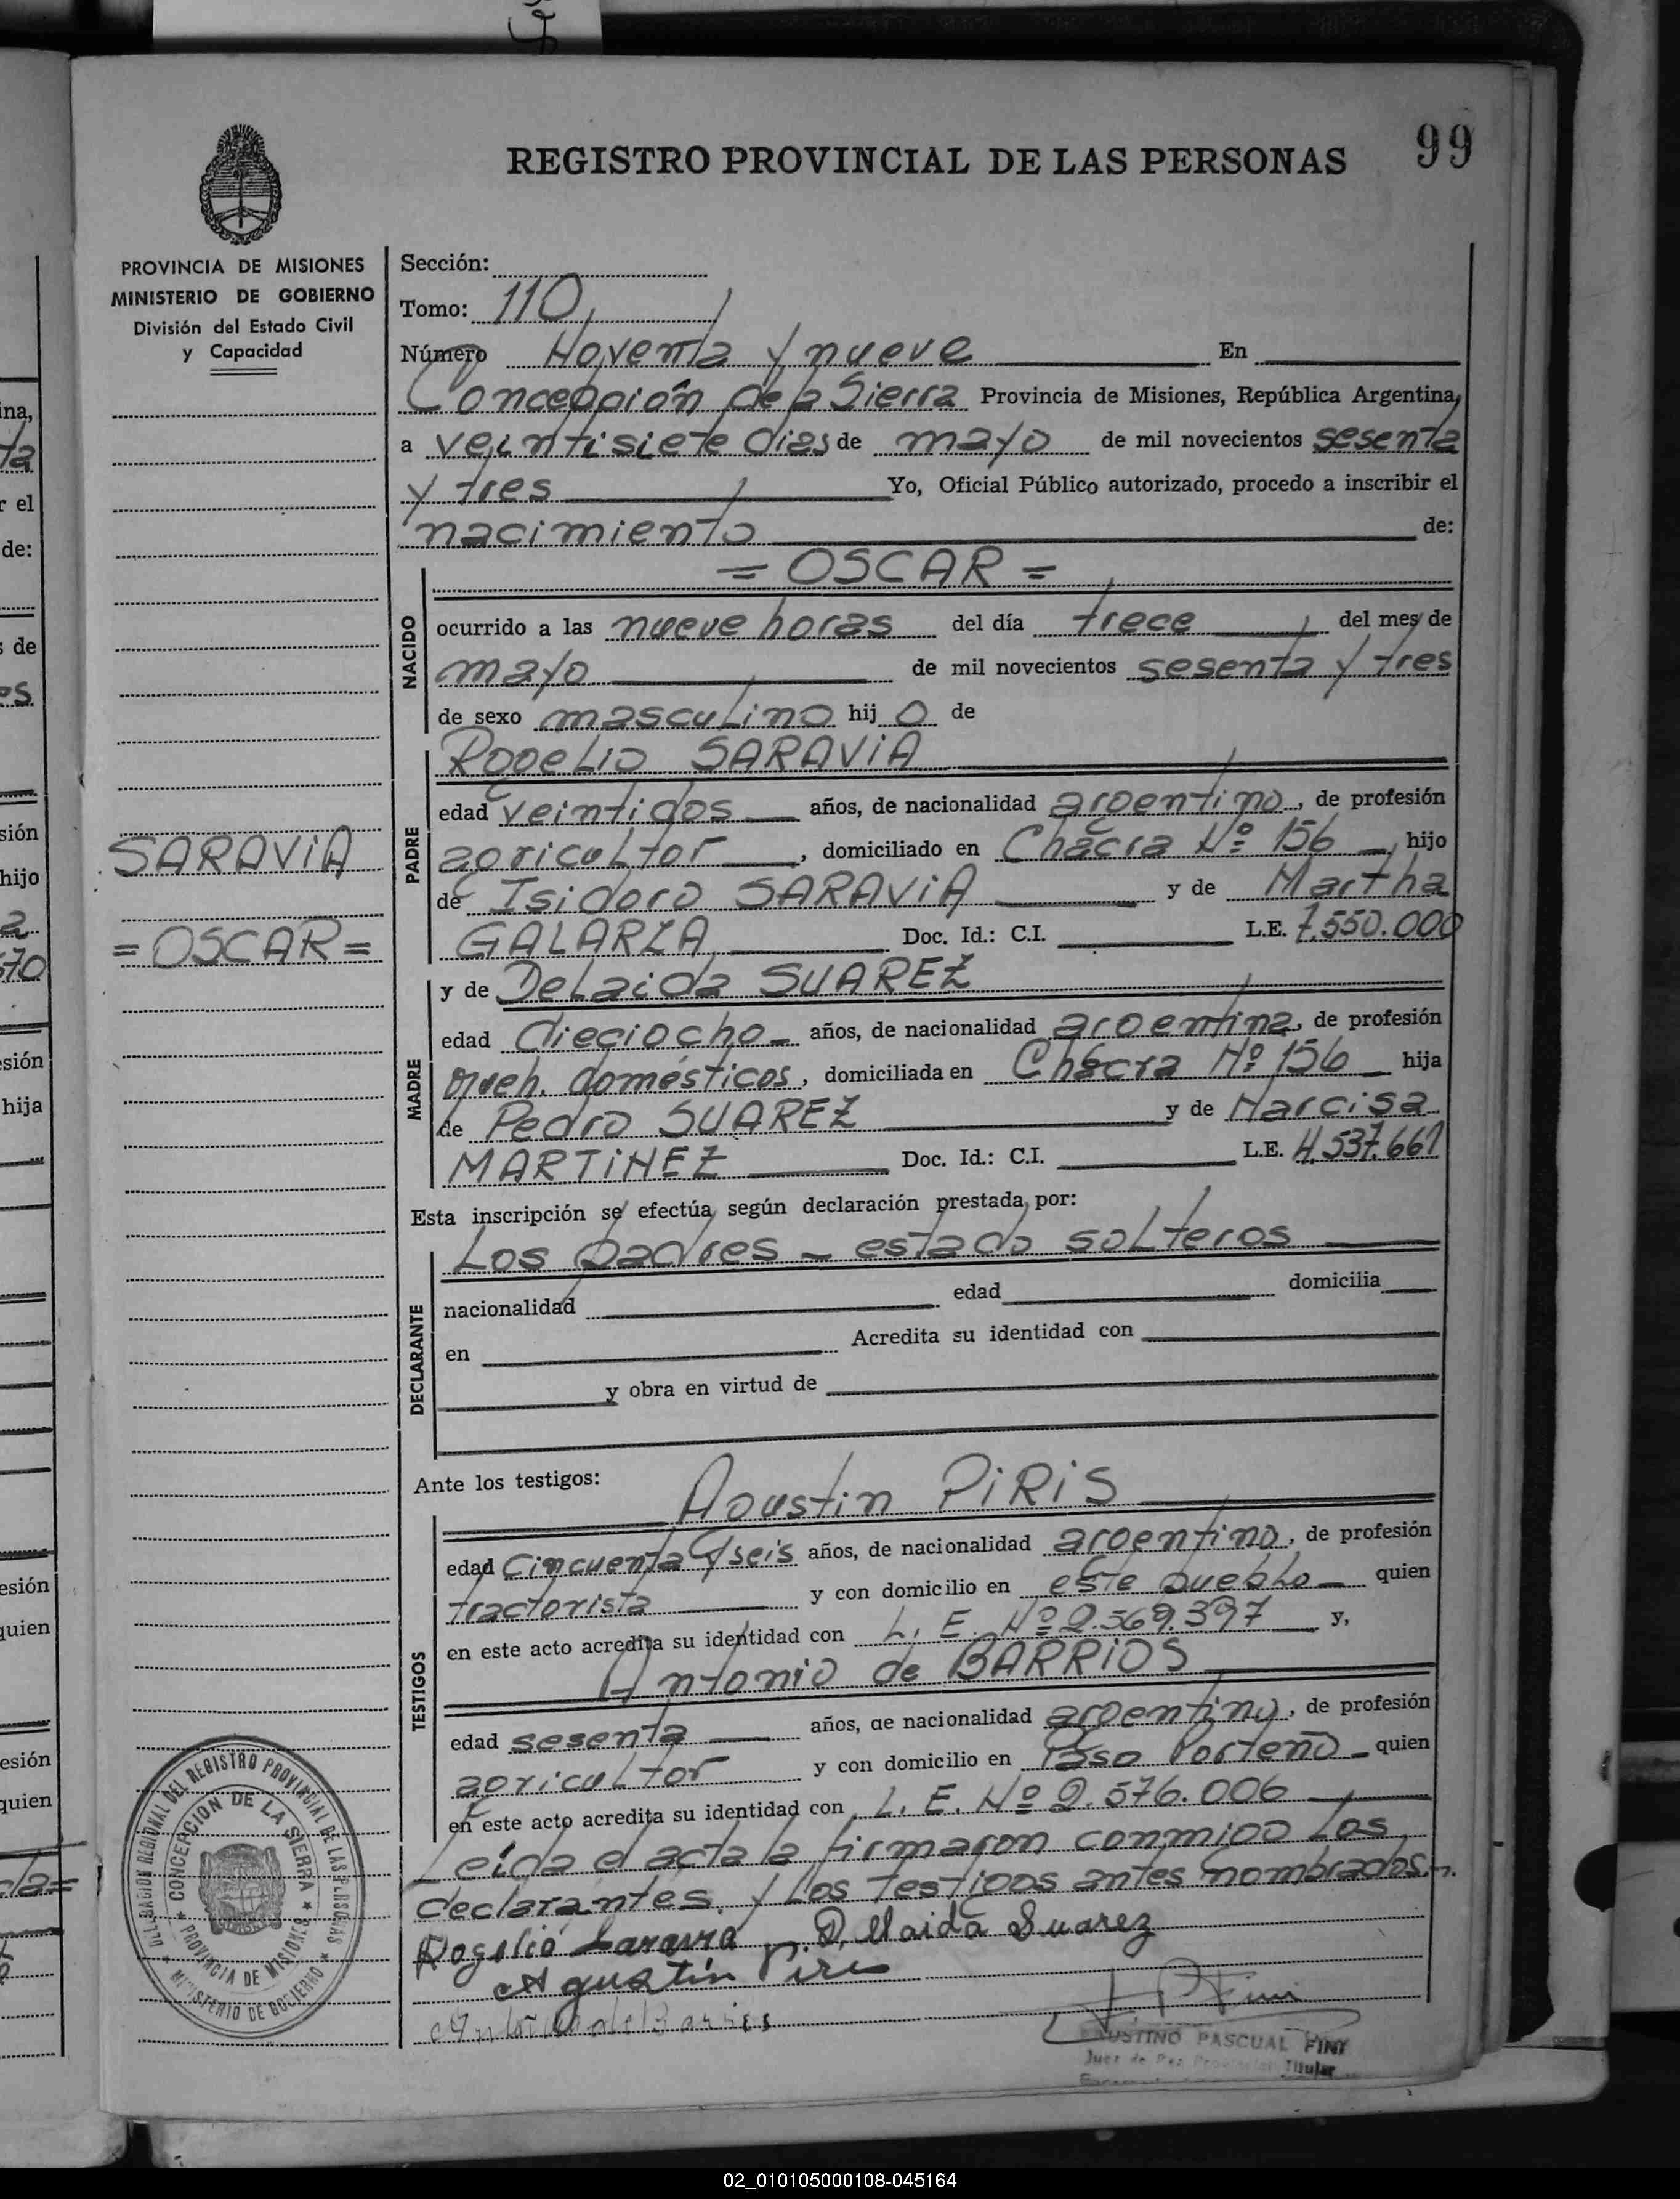 99
REGISTRO PROVINCIAL DE LAS PERSONAS
PROVINCIA DE MISIONES
MINISTERIO DE GOBIERNO
División del Estado Civil
y Capacidad
SARAVIA
= OSCAR =
Sección:
Tomo: 110
Número Noventa y nueve En
Concepción de la Sierra Provincia de Misiones, República Argentina,
a veintisiete dias de mayo de mil novecientos sesenta
y tres Yo, Oficial Público autorizado, procedo a inscribir el
nacimiento de:
= OSCAR =
NACIDO
ocurrido a las nueve horas del día trece del mes de
mayo de mil novecientos sesenta y tres
de sexo masculino hij o de
PADRE
Rogelio SARAVIA
edad veintidos años, de nacionalidad argentino, de profesión
agricultor, domiciliado en Chacra Nº 156, hijo
de Isidoro SARAVIA y de Martha
GALARZA Doc. Id.: C.I. L.E. 7.550.000
MADRE
y de Delaida SUAREZ
edad dieciocho años, de nacionalidad argentina, de profesión
queh. domésticos, domiciliada en Chacra Nº 156 hija
de Pedro SUAREZ y de Narcisa
MARTINEZ Doc. Id.: C.I. L.E. 4.537.661
Esta inscripción se efectúa según declaración prestada por:
DECLARANTE
Los padres - estado solteros
nacionalidad edad domicilia
en Acredita su identidad con
y obra en virtud de
Ante los testigos:
TESTIGOS
Agustin PIRIS
edad Cincuenta y seis años, de nacionalidad argentino, de profesión
tractorista y con domicilio en este pueblo quien
en este acto acredita su identidad con L. E. Nº 2.569.397 y,
Antonio de BARRIOS
edad sesenta años, de nacionalidad argentino, de profesión
agricultor y con domicilio en Paso Porteño quien
en este acto acredita su identidad con L. E. Nº 2.576.006
Leida el acta la firmaron conmigo los
declarantes y los testigos antes nombrados.
Rogelio Saravia D. Elaida Suarez
Agustin Piris
Antonio de Barrios
FAUSTINO PASCUAL FINI
Juez de Paz Titular
DELEGACION REGIONAL DEL REGISTRO PROVINCIAL DE LAS PERSONAS
CONCEPCION DE LA SIERRA
PROVINCIA DE MISIONES
MINISTERIO DE GOBIERNO
02_010105000108-045164